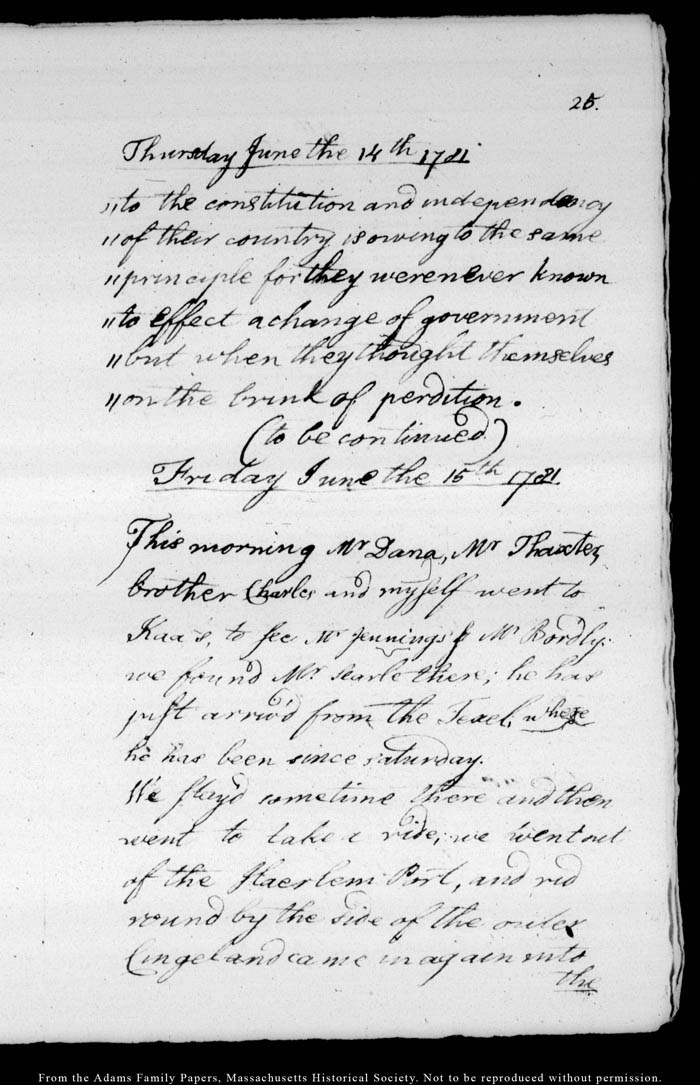 25.
Thursday June the 14th 1781
"to the constitution and independency
"of their country is owing to the same
"principle for they were never known
"to effect a change of government
"but when they thought themselves
"on the brink of perdition.
(to be continued)
Friday June the 15th 1781.
This morning Mr Dana, Mr Thaxter,
brother Charles and myself went to
Kaa's, to see Mr Jennings & Mr Bordly;
we found Mr. Searle there; he has
just arriv'd from the Texel, where
he has been since saturday.
We stay'd sometime there and then
went to take a ride; we went out
of the Haerlem Port, and rid
round by the side of the outer
Cingel and came in again into
the
From the Adams Family Papers, Massachusetts Historical Society. Not to be reproduced without permission.